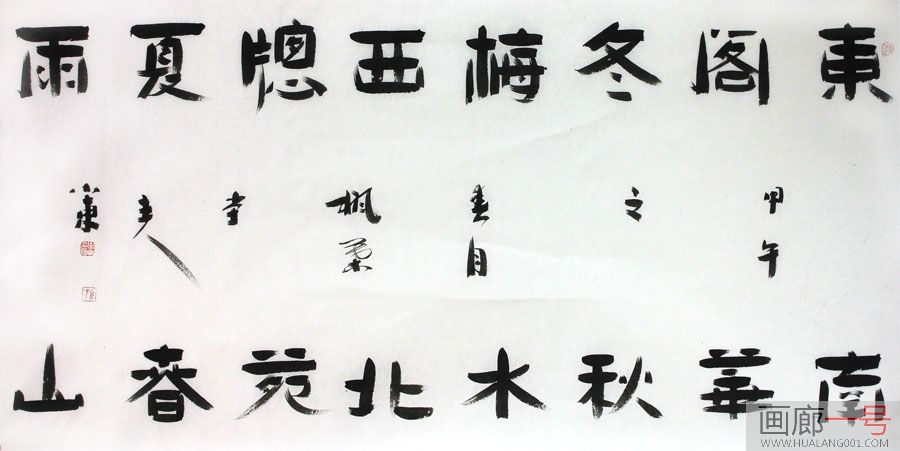 東閣冬梅西牕夏雨
甲午之春月楓葉堂主人
南華秋水北苑春山
画廊一号
WWW.HUALANG001.COM